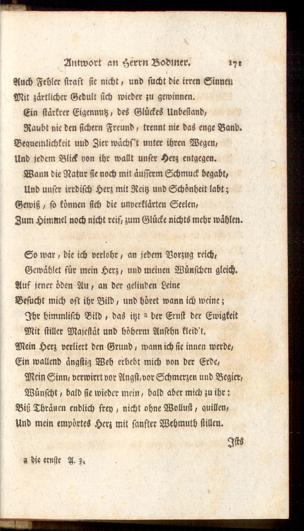 Antwort an Herrn Bodmer. 171
Auch Fehler straft sie nicht, und sucht die irren Sinnen
Mit zärtlicher Gedult sich wieder zu gewinnen.
Ein stärkrer Eigennutz, des Glückes Unbestand,
Raubt nie den sichern Freund, trennt nie das enge Band.
Bequemlichkeit und Zier wächs't unter ihren Wegen,
Und jedem Blick von ihr wallt unser Herz entgegen.
Wann die Natur sie noch mit äusserm Schmuck begabt,
Und unser irrdisch Herz mit Reitz und Schönheit labt;
Gewiß, so können sich die unverklärten Seelen,
Zum Himmel noch nicht reif, zum Glücke nichts mehr wählen.
So war, die ich verlohr, an jedem Vorzug reich,
Gewählet für mein Herz, und meinen Wünschen gleich.
Auf jener öden Au, an der gelinden Leine
Besucht mich oft ihr Bild, und höret wann ich weine;
Ihr himmlisch Bild, das itzt a der Ernst der Ewigkeit
Mit stiller Majestät und höherm Ansehn kleid't.
Mein Herz verliert den Grund, wann ich sie innen werde,
Ein wallend ängstig Weh erhebt mich von der Erde,
Mein Sinn, verwirrt vor Angst, vor Schmerzen und Begier,
Wünscht, bald sie wieder mein, bald aber mich zu ihr:
Biß Thränen endlich frey, nicht ohne Wollust, quillen,
Und mein empörtes Herz mit sanfter Wehmuth stillen.
Ists
a die ernste A. 3.